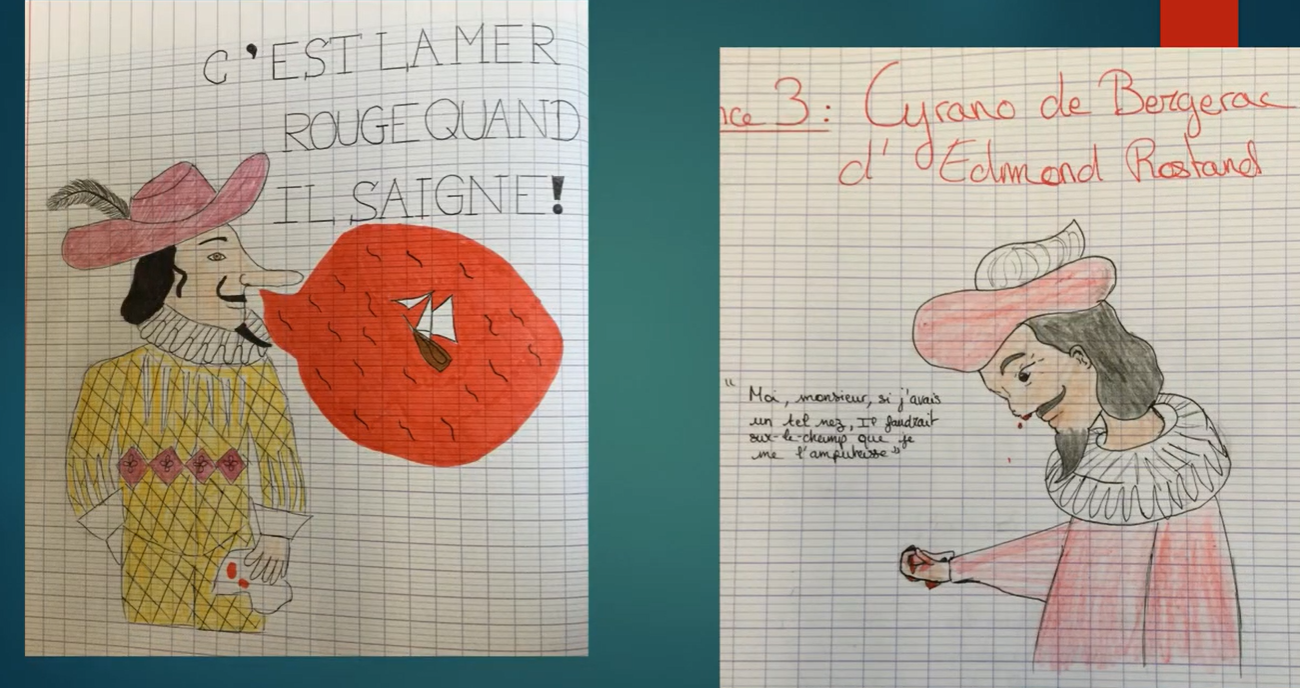 C'EST LA MER
ROUGE QUAND
IL SAIGNE!
nce 3: Cyrano de Bergerac
d'Edmond Rostand
" Moi, monsieur, si j'avais
un tel nez, Il faudrait
sur-le-champ que je
me l'amputasse "